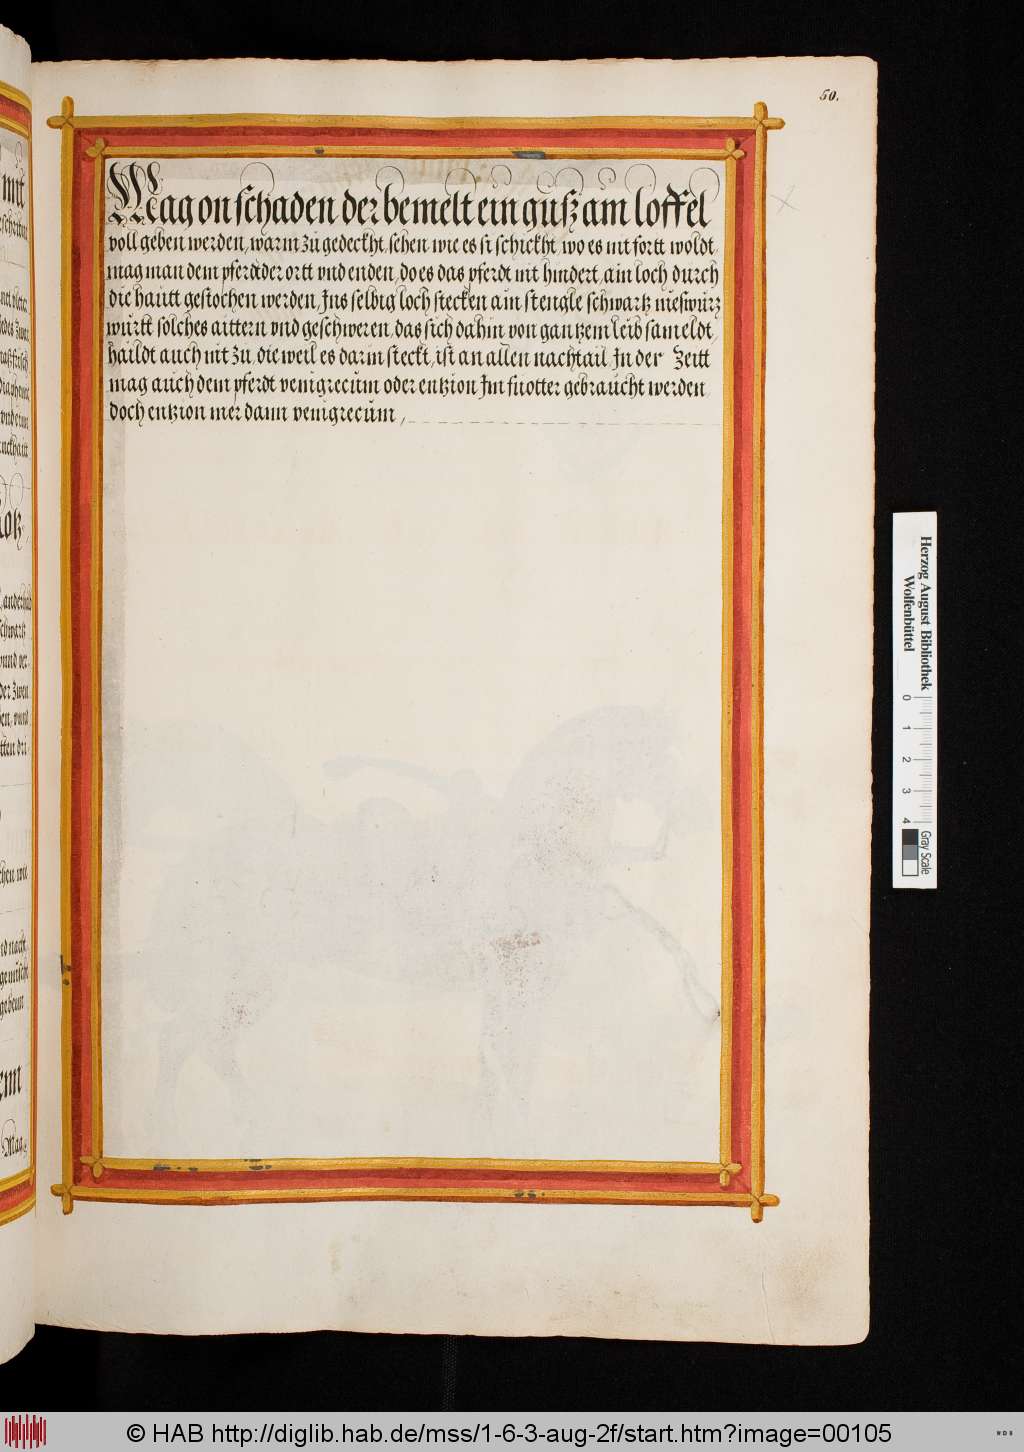 50.
Mag on schaden der bemelt ein guß am loffel
voll geben werden, warm zu gedeckht, sehen wie es si schickht, wo es nit fortt woldt,
mag man dem pferdt der ortt vnd enden, do es das pferdt nit hindert, ain loch durch
die hautt gestochen werden, Ins selbig loch stecken ain stengle schwartz nieswurtz
württ solches aittern vnd geschweren, das sich dahin von gantzem leib sameldt,
haildt auch nit zu, die weil es darin steckt, ist an allen nachtail, In der Zeitt
mag auch dem pferdt venigrecum oder entzion Im fuotter gebraucht werden,
doch entzion mer dann venigrecum,
Herzog August Bibliothek
Wolfenbüttel
0 1 2 3 4
Gray Scale
© HAB http://diglib.hab.de/mss/1-6-3-aug-2f/start.htm?image=00105